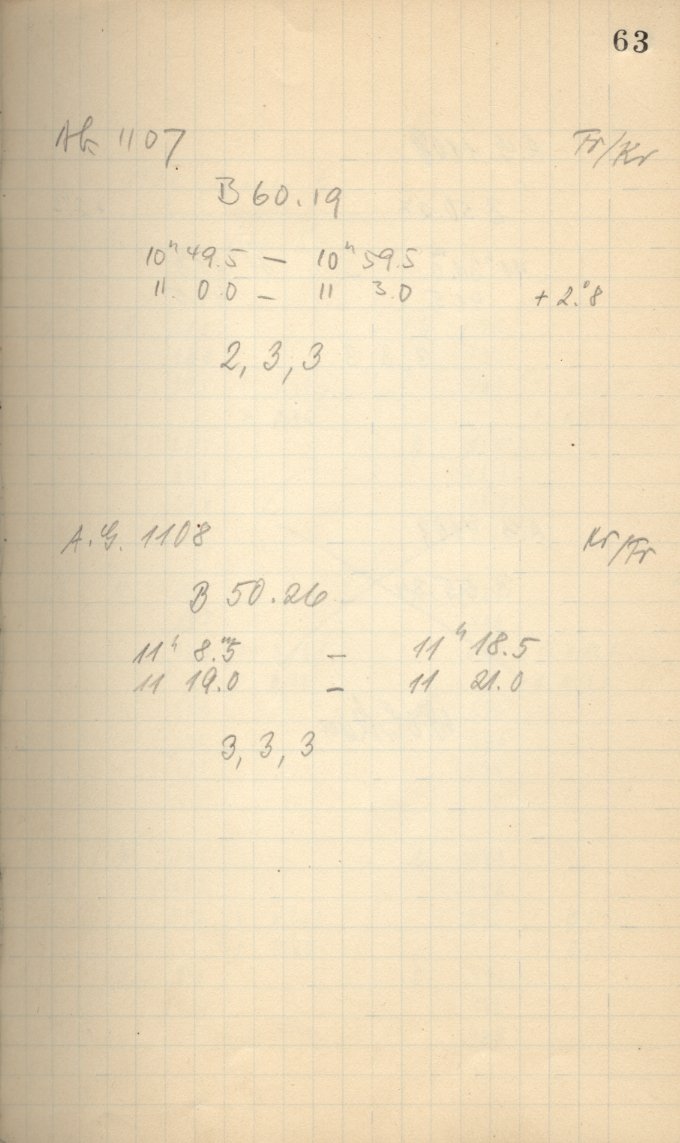 63
AG 1107 Fr/Kr
B 60.19
10ʰ 49.5 — 10ʰ 59.5
11 0.0 — 11 3.0 + 2.ˢ8
2, 3, 3
A.G. 1108 Kr/Fr
B 50.26
11ʰ 8.ᵐ5 — 11ʰ 18.5
11 19.0 — 11 21.0
3, 3, 3